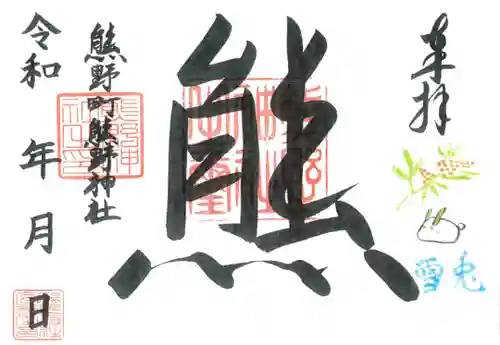 奉拝
雪兎
熊
熊野町熊野神社
令和 年 月 日